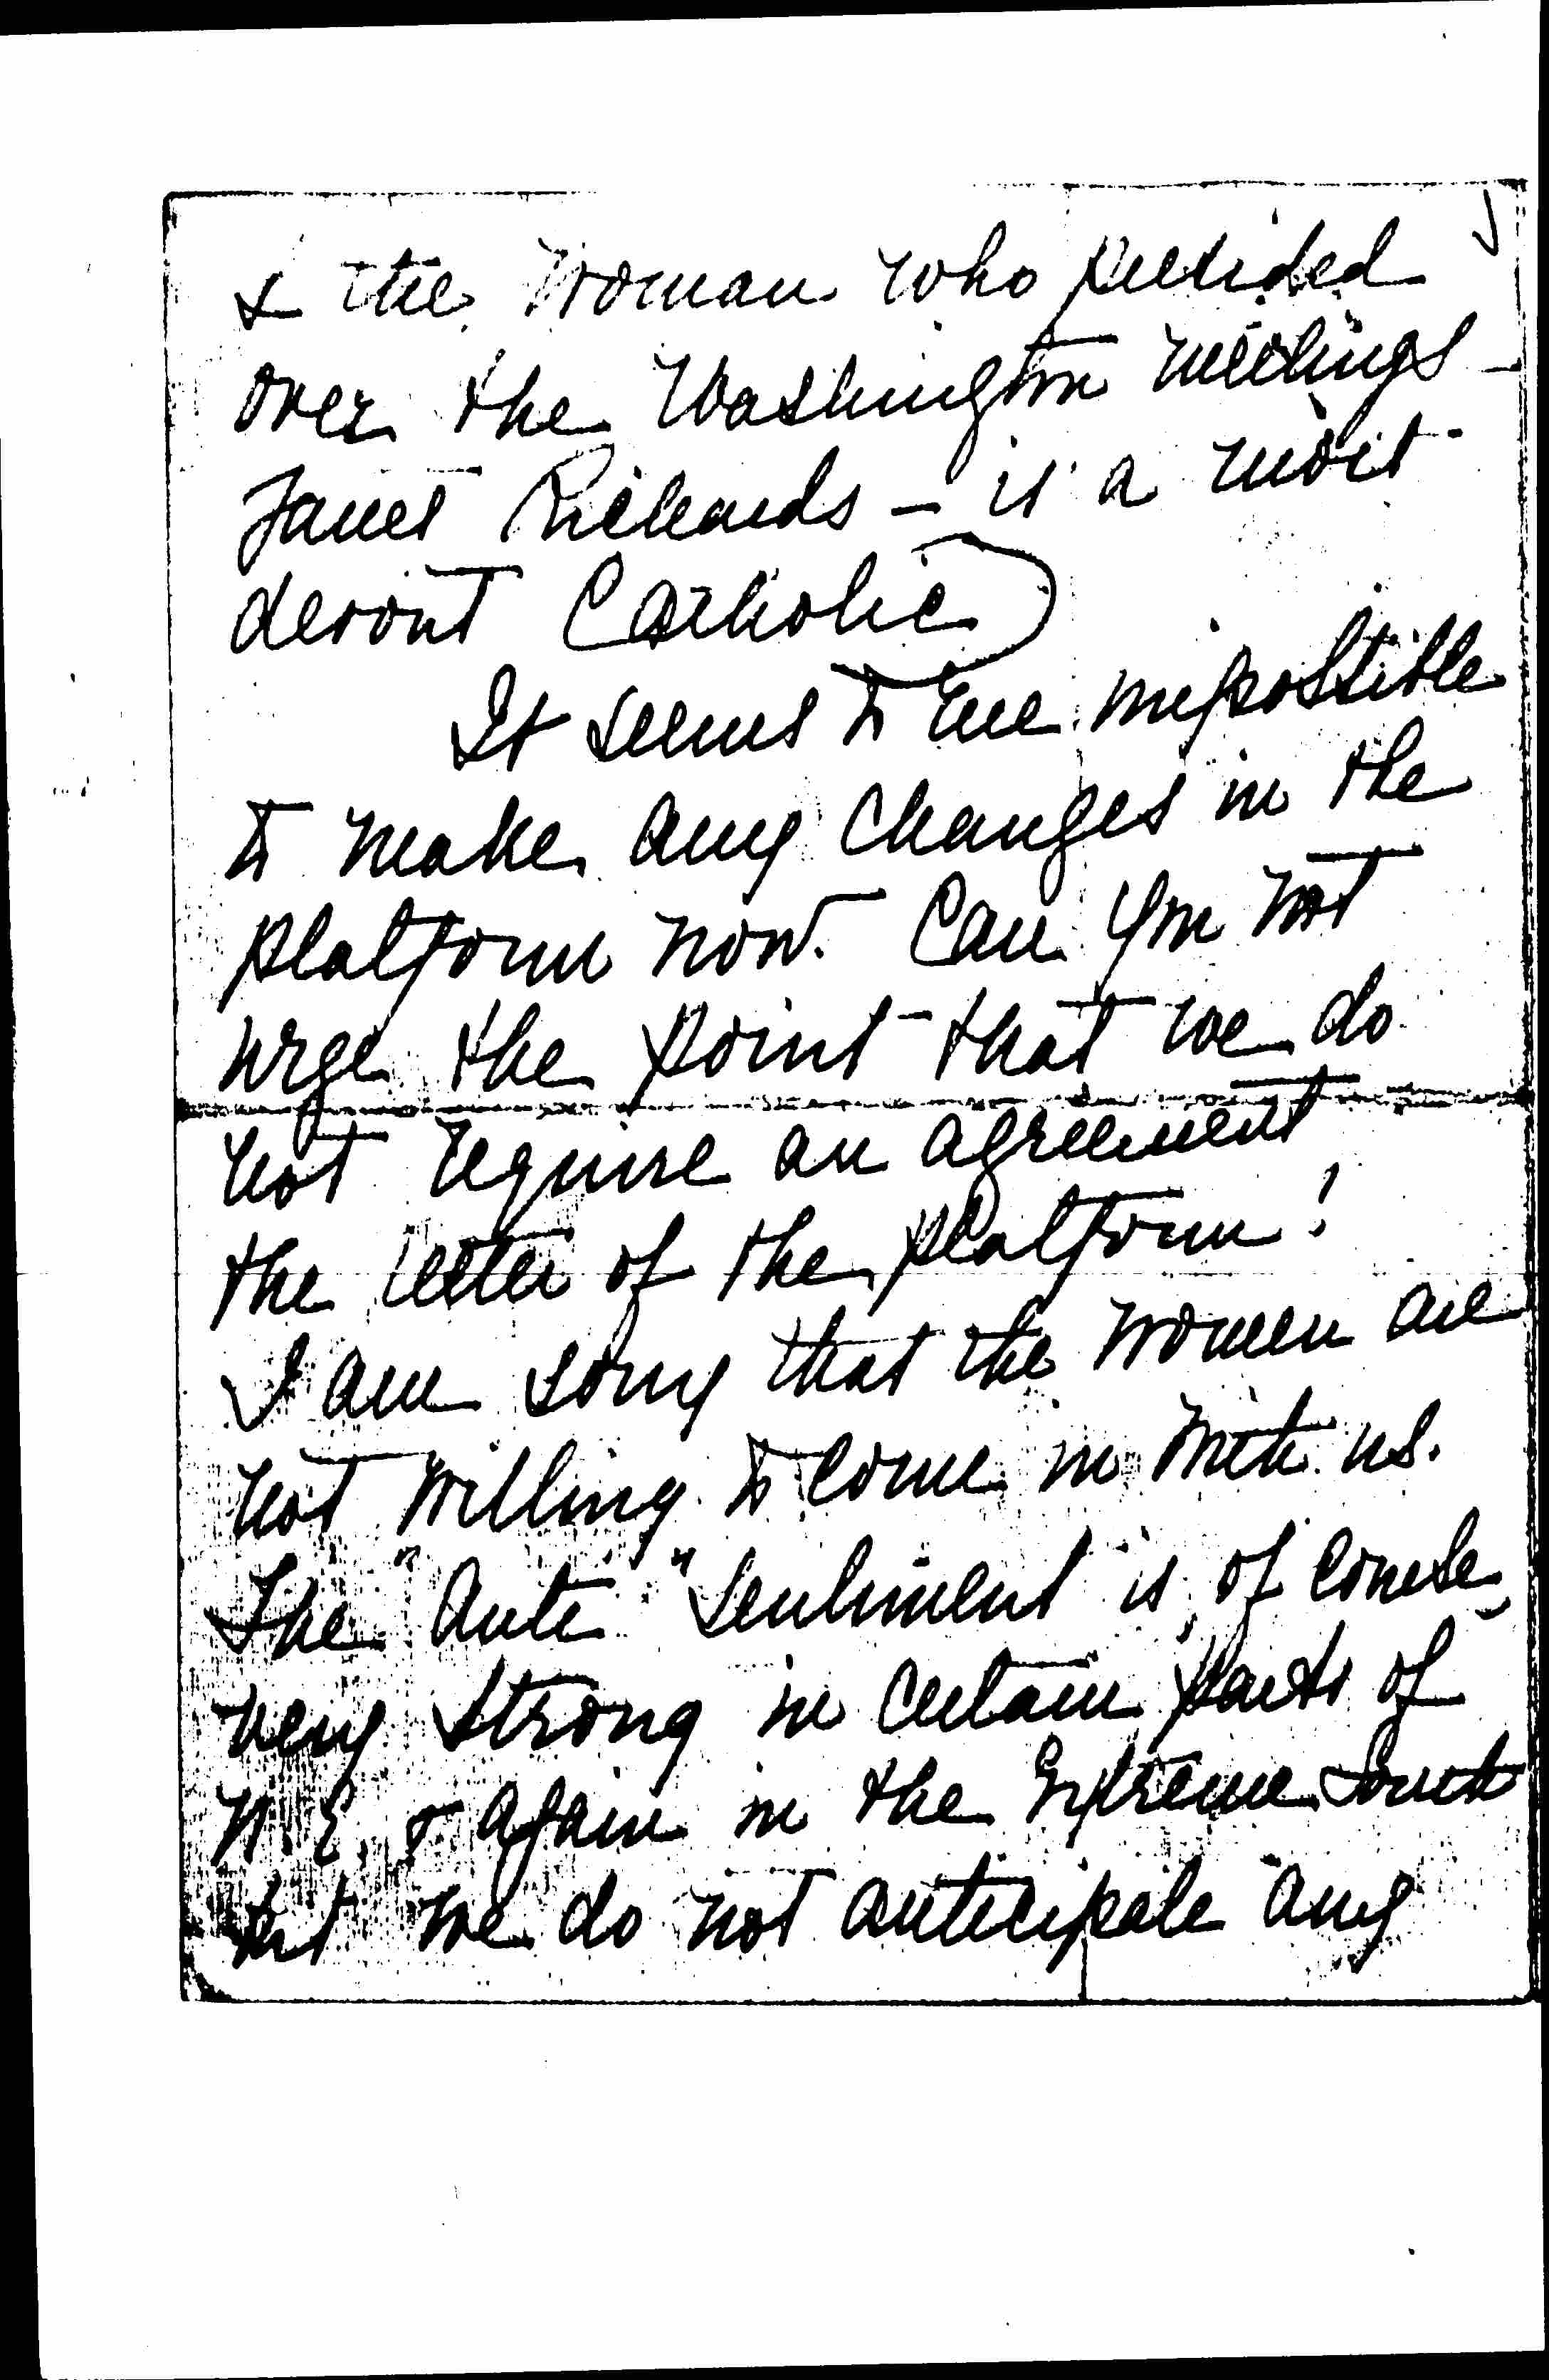 & the woman who presided
over the Washington meetings -
Janet Richards - is a most
devout Catholic)
It seems to me impossible
to make any changes in the
platform now. Can you not
urge the point that we do
not require an agreement
the letter of the platform!
I am sorry that the women are
not willing to come in with us.
The "Anti" sentiment is, of course,
very strong in certain parts of
N.E. & again in the Extreme South
but we do not anticipate any